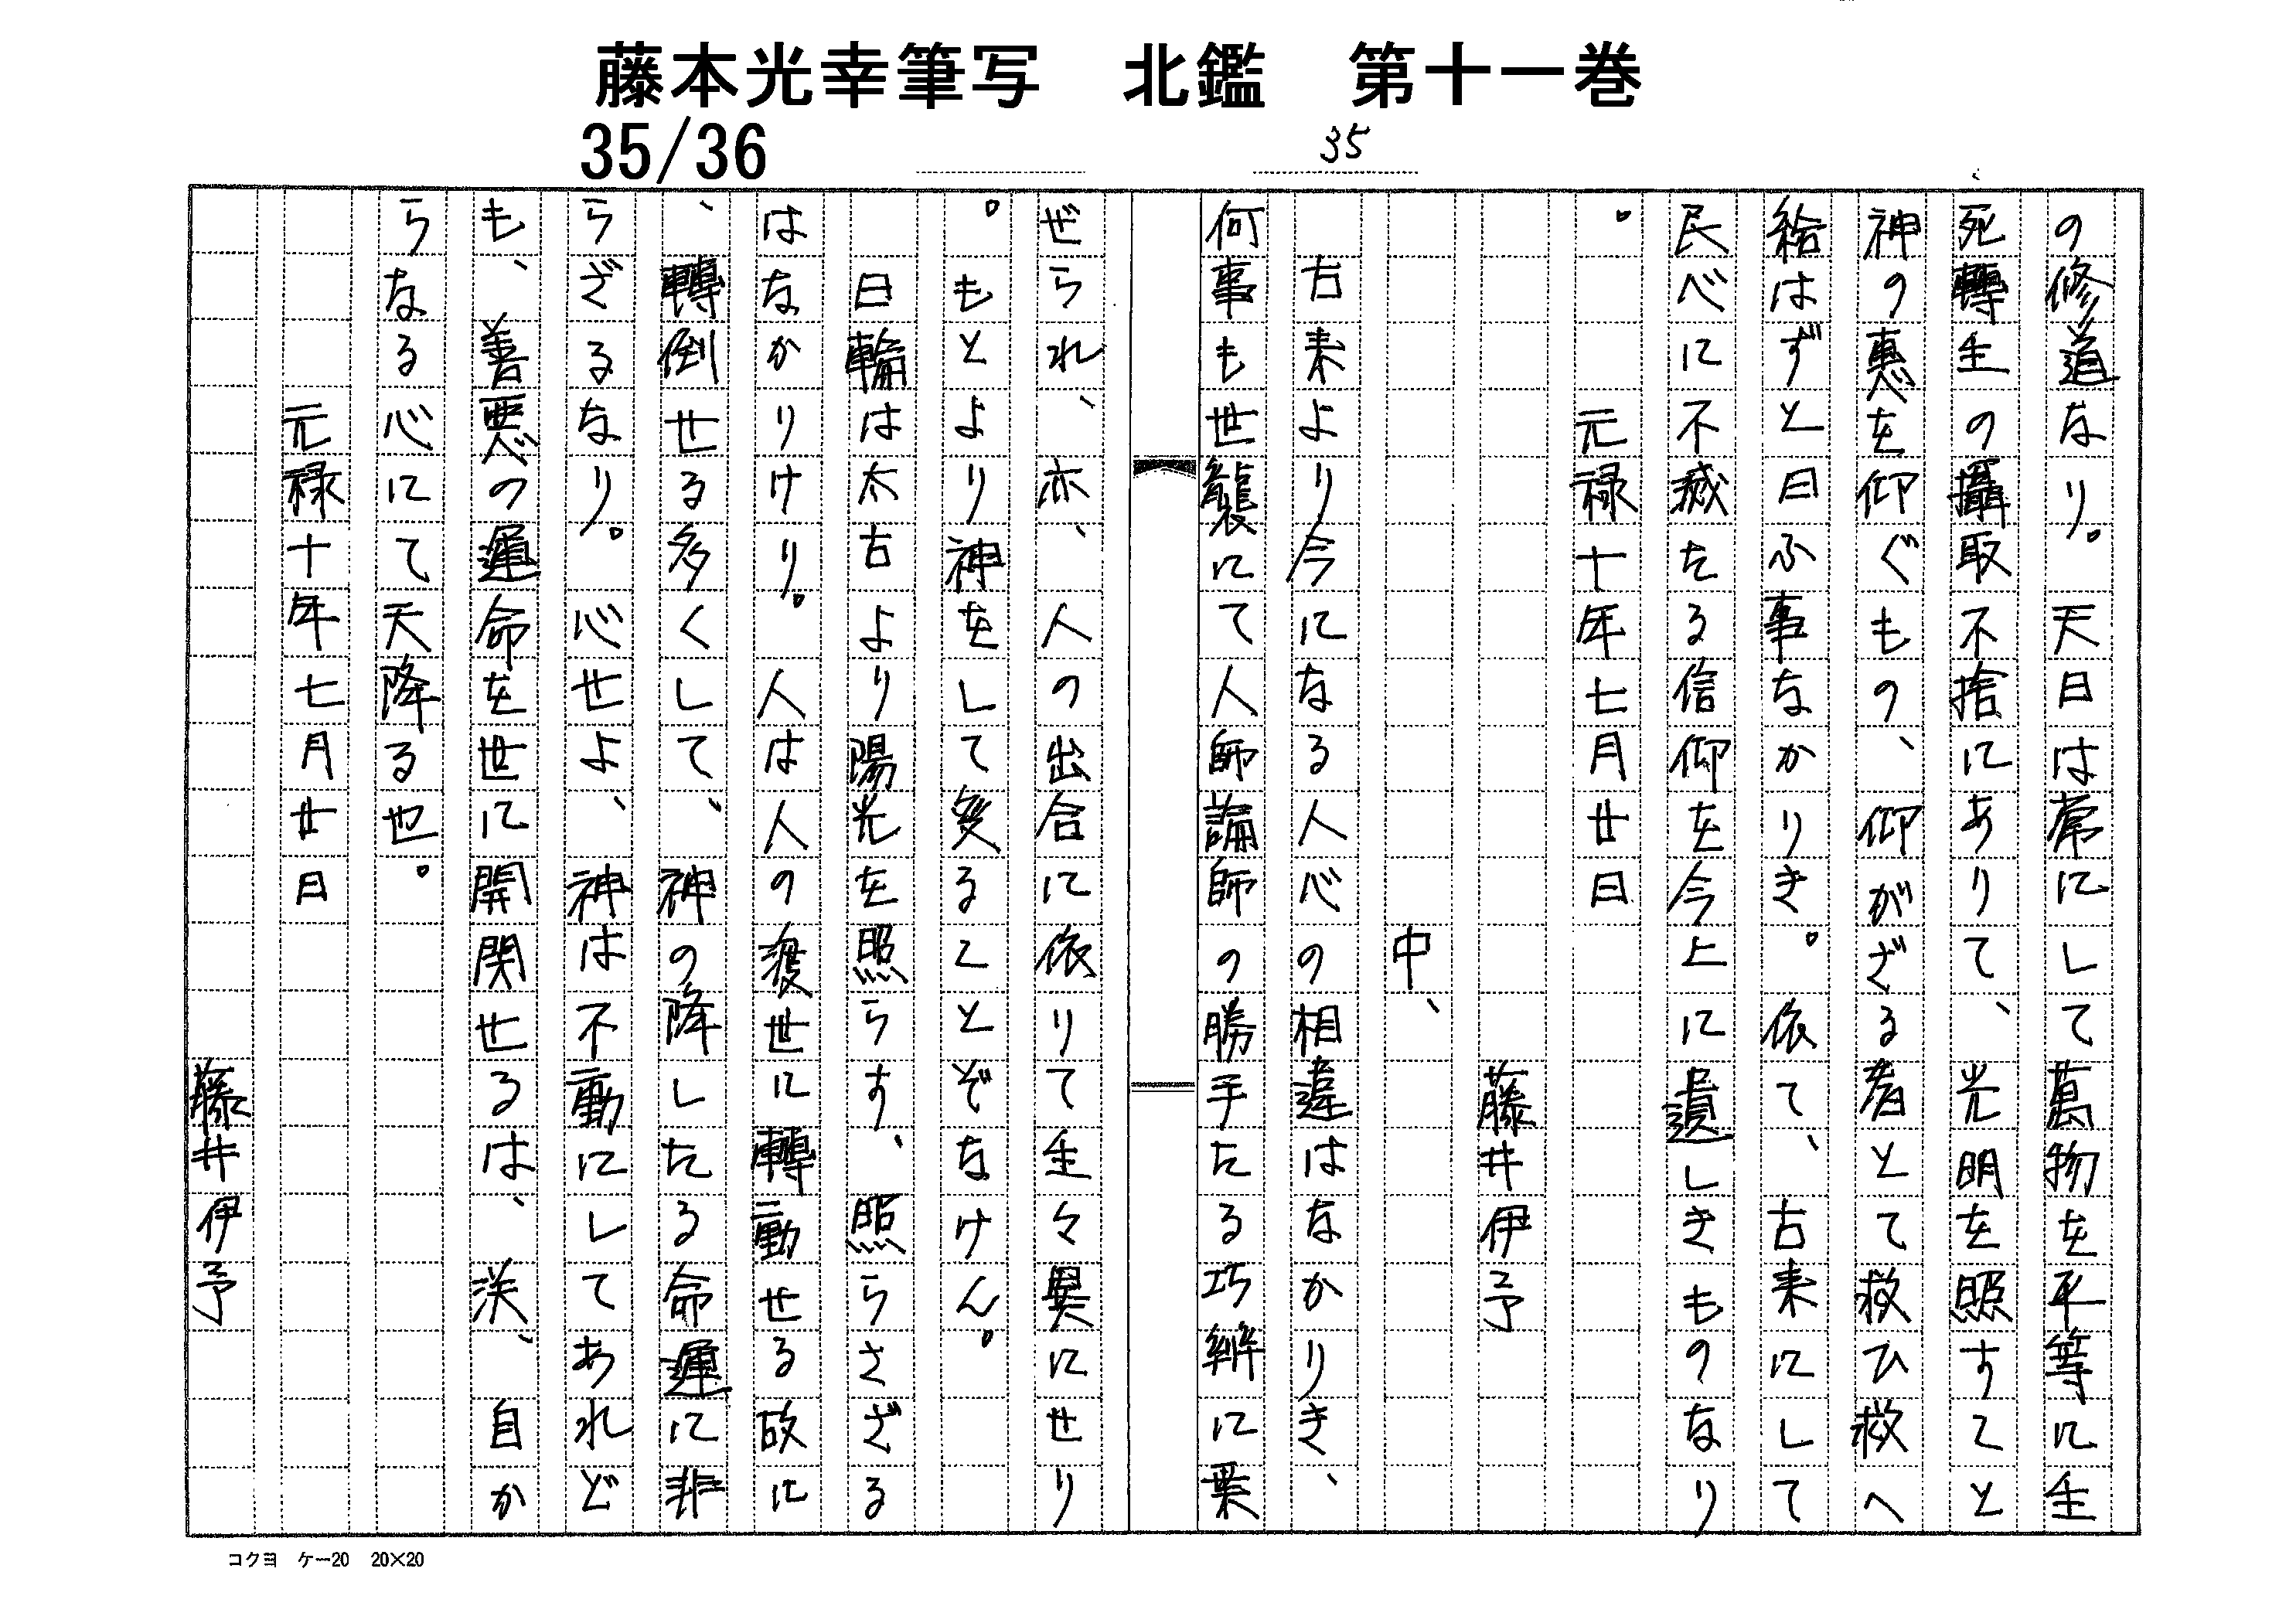 藤本光幸筆写　北鑑　第十一巻
35/36
35
の修道なり。天日は常にして萬物を平等に生
死轉生の攝取不捨にありて、光明を照すことと
神の惠を仰ぐもの、仰がざる者とて救ひ救へ
給はずと曰ふ事なかりき。依て、古来にして
民心に不滅たる信仰を今上に遺しきものなり
。
元禄十年七月廿日
藤井伊予
中、
古来より今になる人心の相違はなかりき、
何事も世襲にて人師論師の勝手たる巧辨に葉
ぜられ、亦、人の出合に依りて生々異にせり
。もとより神をして変ることぞなけん。
日輪は太古より陽光を照らす、照らさざる
はなかりけり。人は人の渡世に轉動せる故に
、轉倒世る多くして、神の降したる命運に非
らざるなり。心世よ、神は不動にしてあれど
も、善悪の運命を世に開関世るは、渋、自か
らなる心にて天降る也。
元禄十年七月廿日
藤井伊予
コクヨ　ケー20　20×20